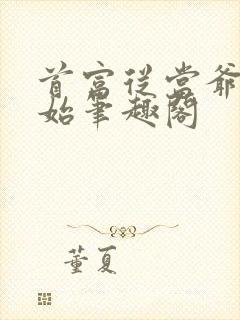 首富从当爷
始笔趣阁
董夏